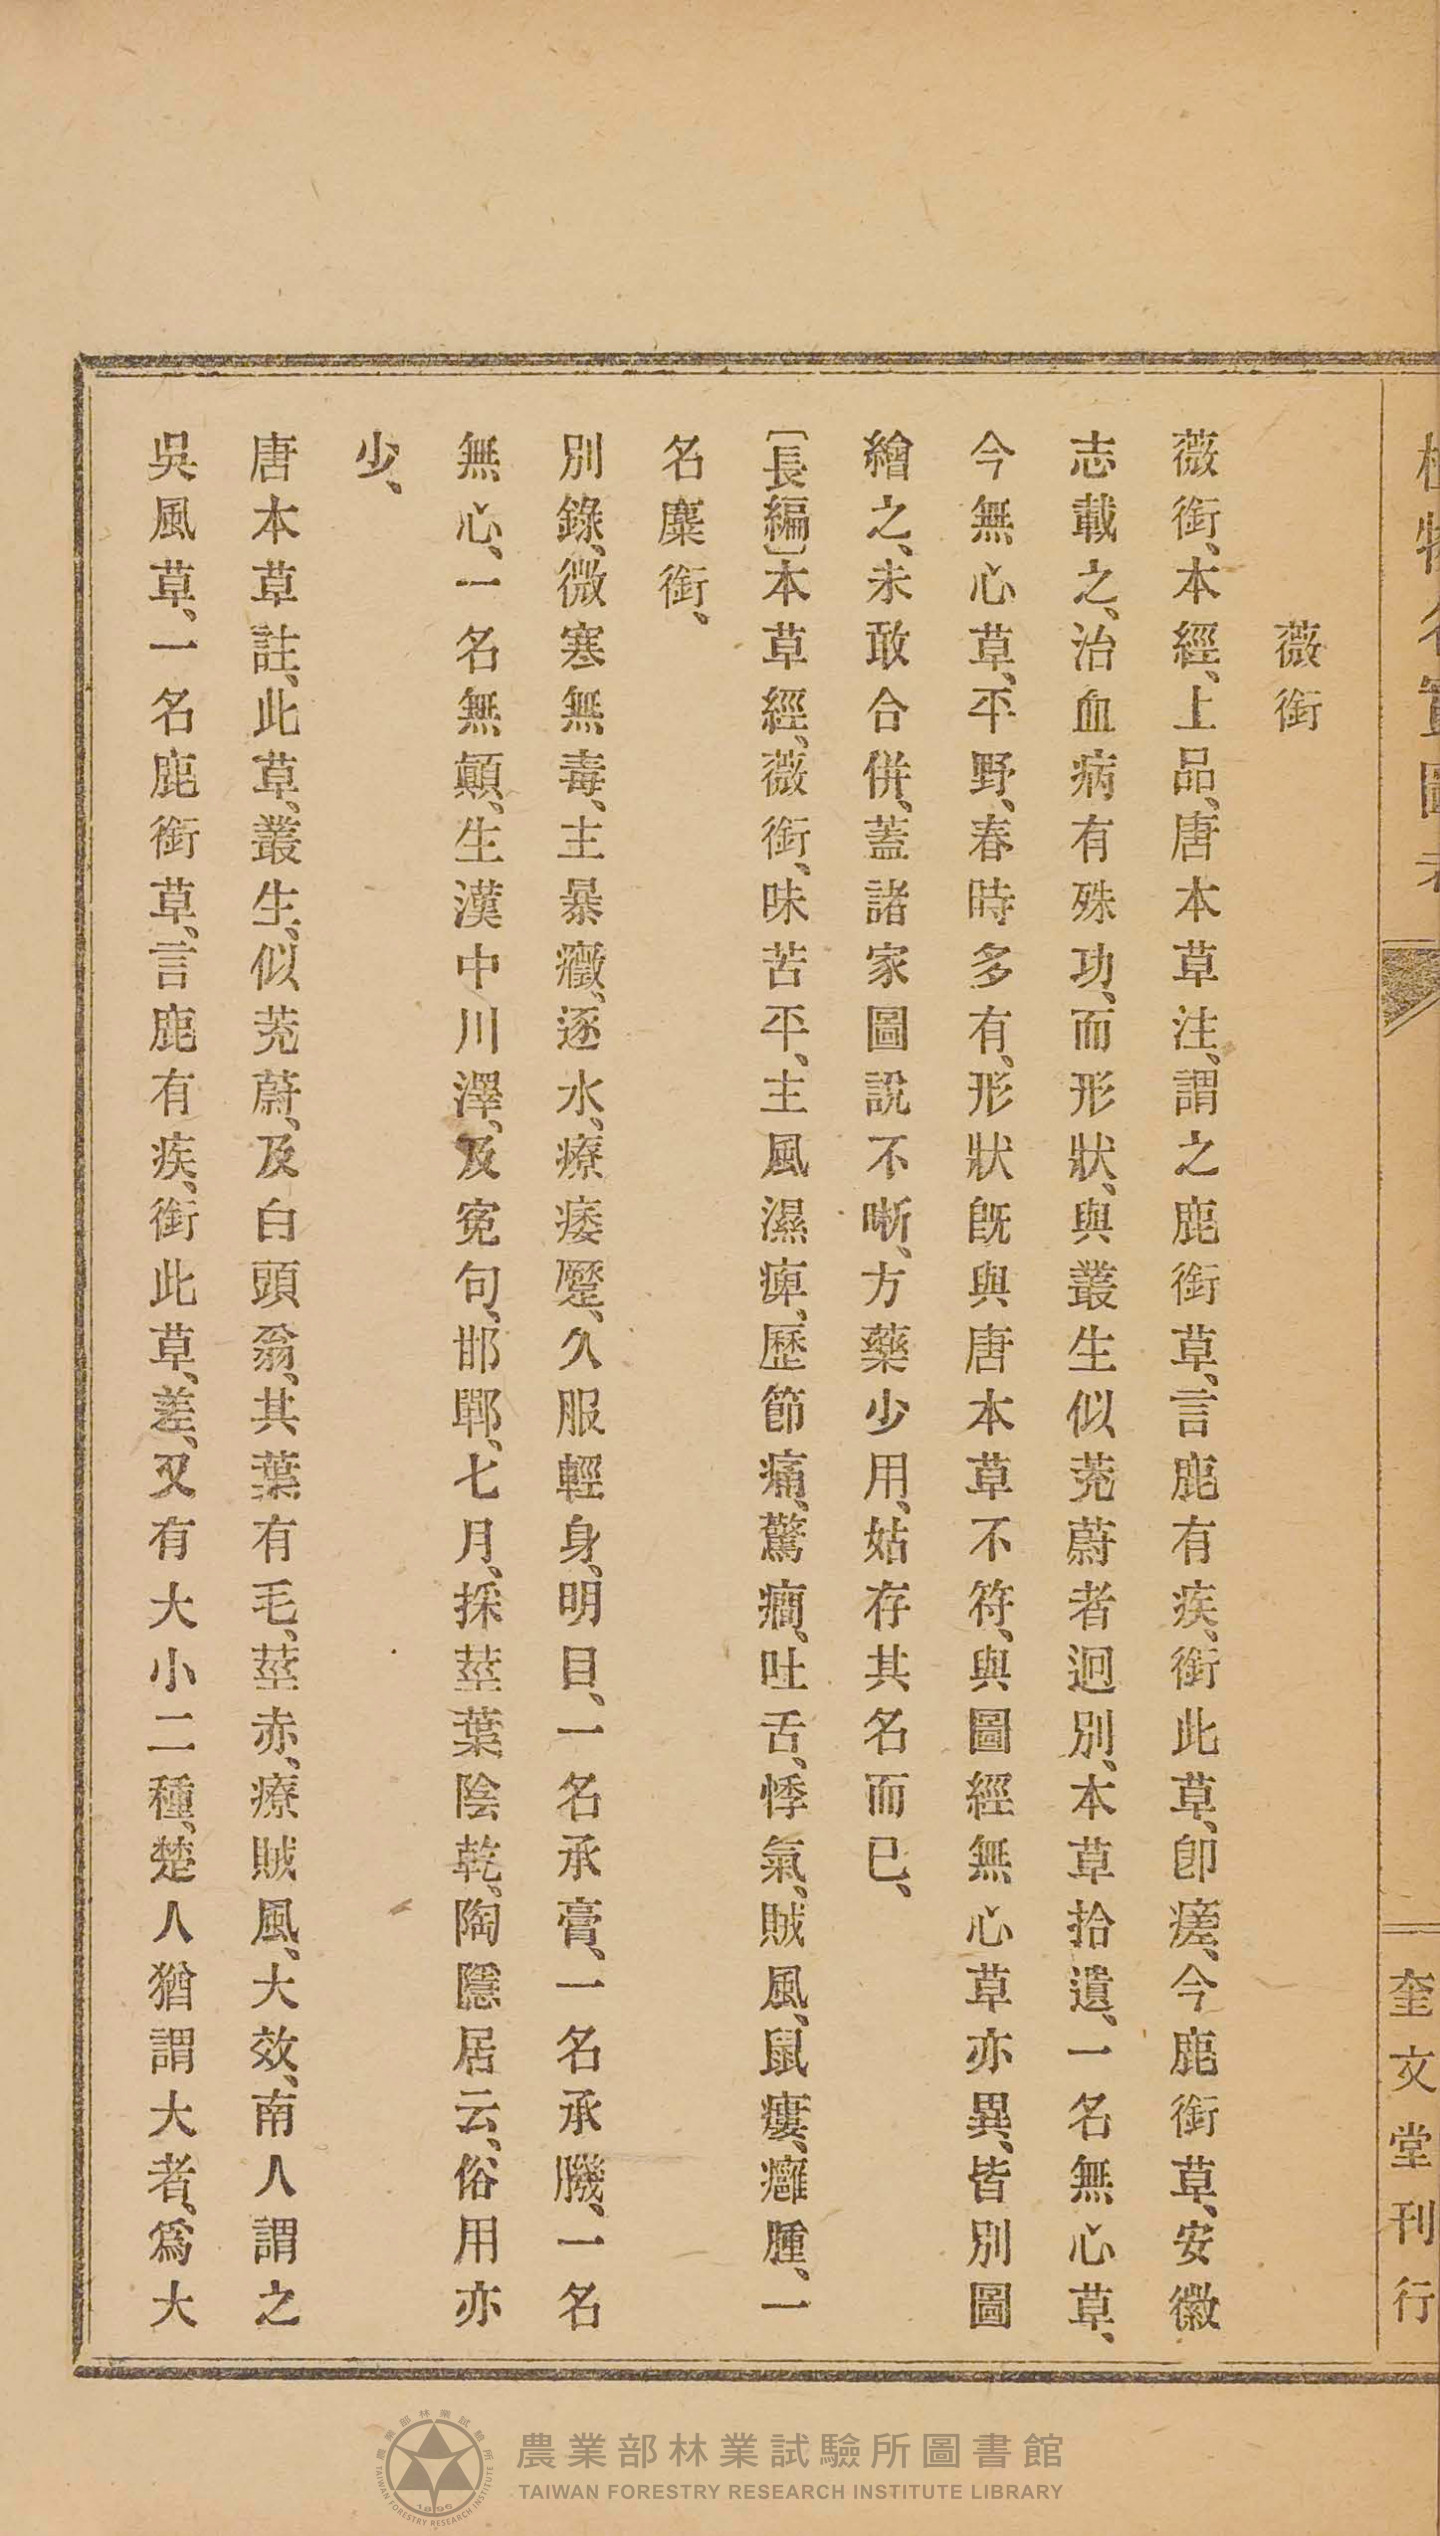 植物名實圖考
奎文堂刊行
薇銜
薇銜、本經、上品、唐本草注、謂之鹿銜草、言鹿有疾、銜此草、卽瘥、今鹿銜草、安徽
志載之、治血病有殊功、而形狀、與叢生似茺蔚者迥別、本草拾遺、一名無心草、
今無心草、平野、春時多有、形狀旣與唐本草不符、與圖經無心草亦異、皆別圖
繪之、未敢合併、蓋諸家圖說不晣、方藥少用、姑存其名而已、
〔長編〕本草經、薇銜、味苦平、主風濕痺、歷節痛、驚癎、吐舌、悸氣、賊風、鼠瘻、癰腫、一
名麋銜、
別錄、微寒無毒、主暴癥、逐水、療痿蹷、久服輕身、明目、一名承膏、一名承膌、一名
無心、一名無顚、生漢中川澤、及寃句、邯鄲、七月、採莖葉陰乾、陶隱居云、俗用亦
少、
唐本草註、此草、叢生、似茺蔚、及白頭翁、其葉有毛、莖赤、療賊風、大效、南人謂之
吳風草、一名鹿銜草、言鹿有疾、銜此草、差、又有大小二種、楚人猶謂大者、爲大
農業部林業試驗所圖書館
TAIWAN FORESTRY RESEARCH INSTITUTE LIBRARY
農業部林業試驗所
TAIWAN FORESTRY RESEARCH INSTITUTE
1896